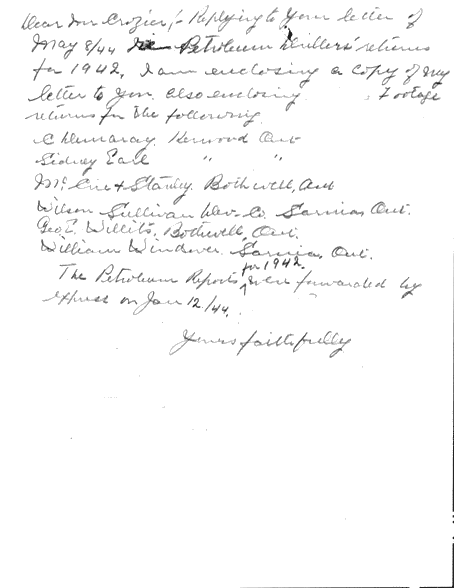 Dear Mr Crozier,:- Replying to Your letter of
May 8/44 Petroleum Drillers' returns
for 1942, I am enclosing a copy of my
letter to you. also enclosing Footage
returns for the following
C Demaray. Kerwood Ont
Sidney Earl " "
McCrie & Stanley. Bothwell, Ont
Wilson Sullivan Dev. Co. Sarnia, Ont.
Geo. E. Willits, Bothwell, Ont.
William Windover. Sarnia, Ont.
for 1942.
The Petroleum Reports were forwarded by
express on Jan 12/44.
Yours faithfully